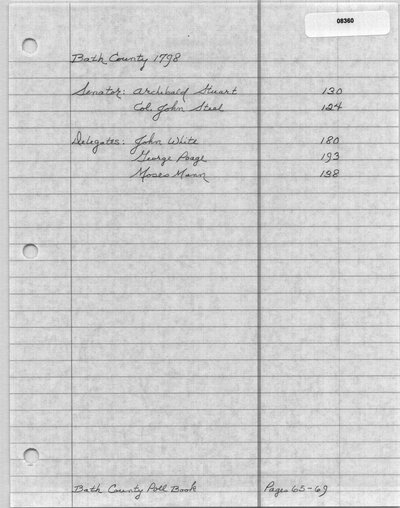 08360
Bath County 1798
Senator: Archibald Stuart 130
Col. John Steel 124
Delegates: John White 180
George Poage 193
Moses Mann 138
Bath County Poll Book Pages 65-69